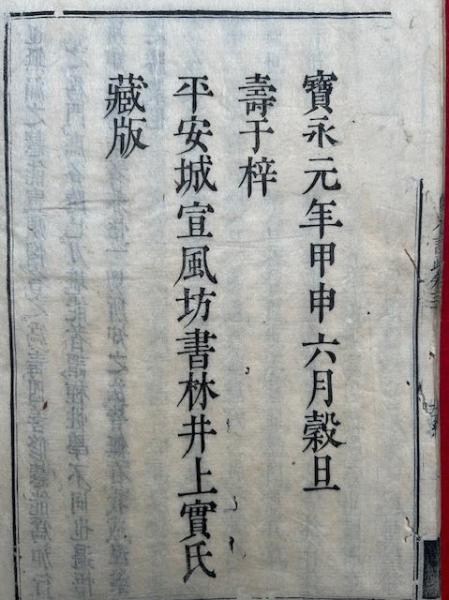 寶永元年甲申六月穀旦
壽于梓
平安城宣風坊書林井上實氏
藏版